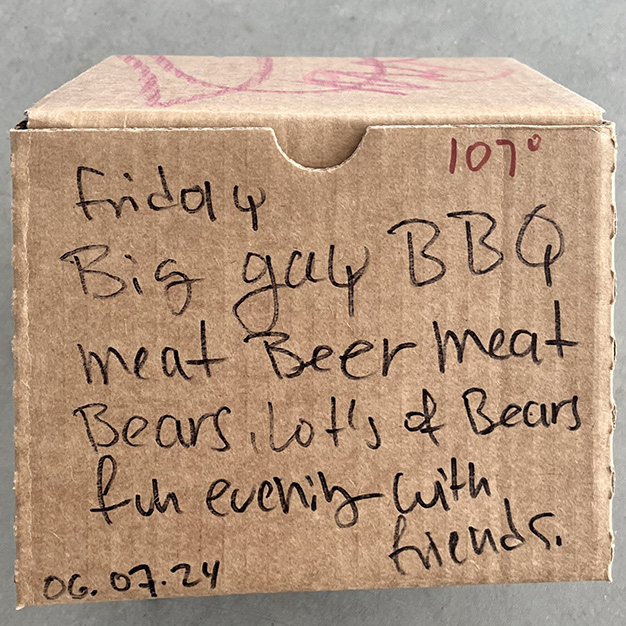 107°
Friday
Big gay BBQ
meat Beer meat
Bears, Lot's of Bears
fun evening with
friends.
06.07.24